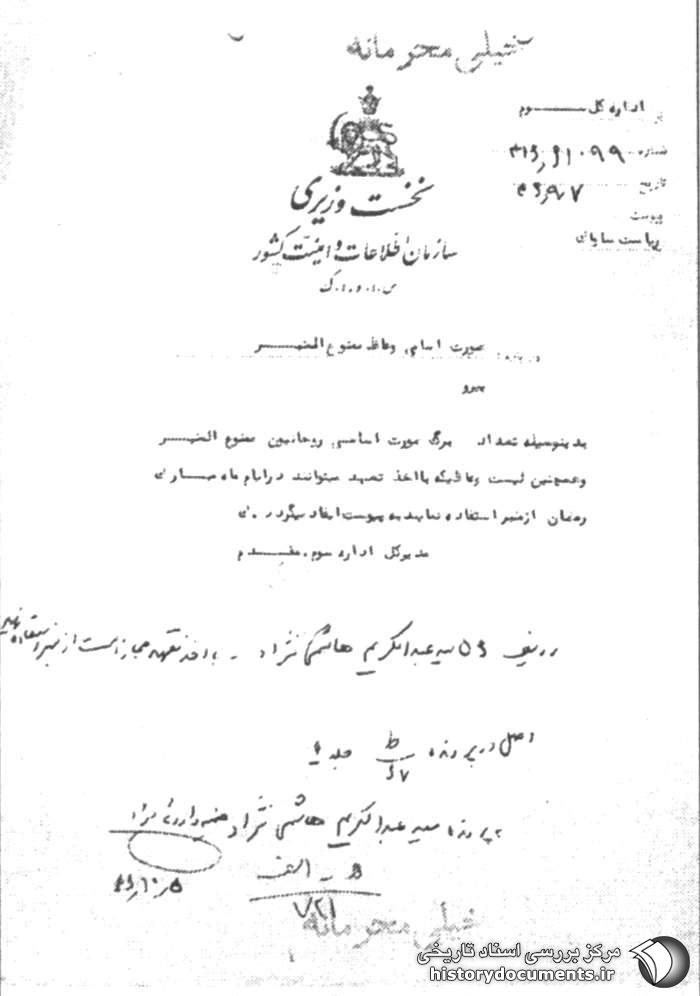 خیلی محرمانه
اداره کل سوم
شماره ۳۱۶٫۶۱۰۹۹
تاریخ ۴۶٫۹٫۷
پیوست
ریاست ساواک
نخست وزیری
سازمان اطلاعات و امنیت کشور
س.ا.و.ا.ک
درباره: صورت اسامی وعاظ ممنوع المنبر
پیرو
بدینوسیله تعداد برگ صورت اسامی روحانیون ممنوع المنبر
و همچنین لیست وعاظیکه با اخذ تعهد میتوانند در ایام ماه مبارک
رمضان از منبر استفاده نمایند به پیوست ایفاد میگردد. ی
مدیرکل اداره سوم. مقدم
ردیف ۵۶ سید عبدالکریم هاشمی نژاد - با اخذ تعهد مجاز است از منبر استفاده نماید
اصل در پرونده ط جلد ۴
۶۷
پرونده سید عبدالکریم هاشمی نژاد
۴۶٫۱۰٫۵
B - الف
۷۲۱
خیلی محرمانه
مرکز بررسی اسناد تاریخی
historydocuments.ir